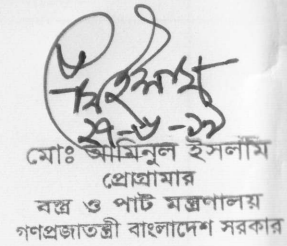 মোঃ আমিনুল ইসলাম
প্রোগ্রামার
বস্ত্র ও পাট মন্ত্রণালয়
গণপ্রজাতন্ত্রী বাংলাদেশ সরকার